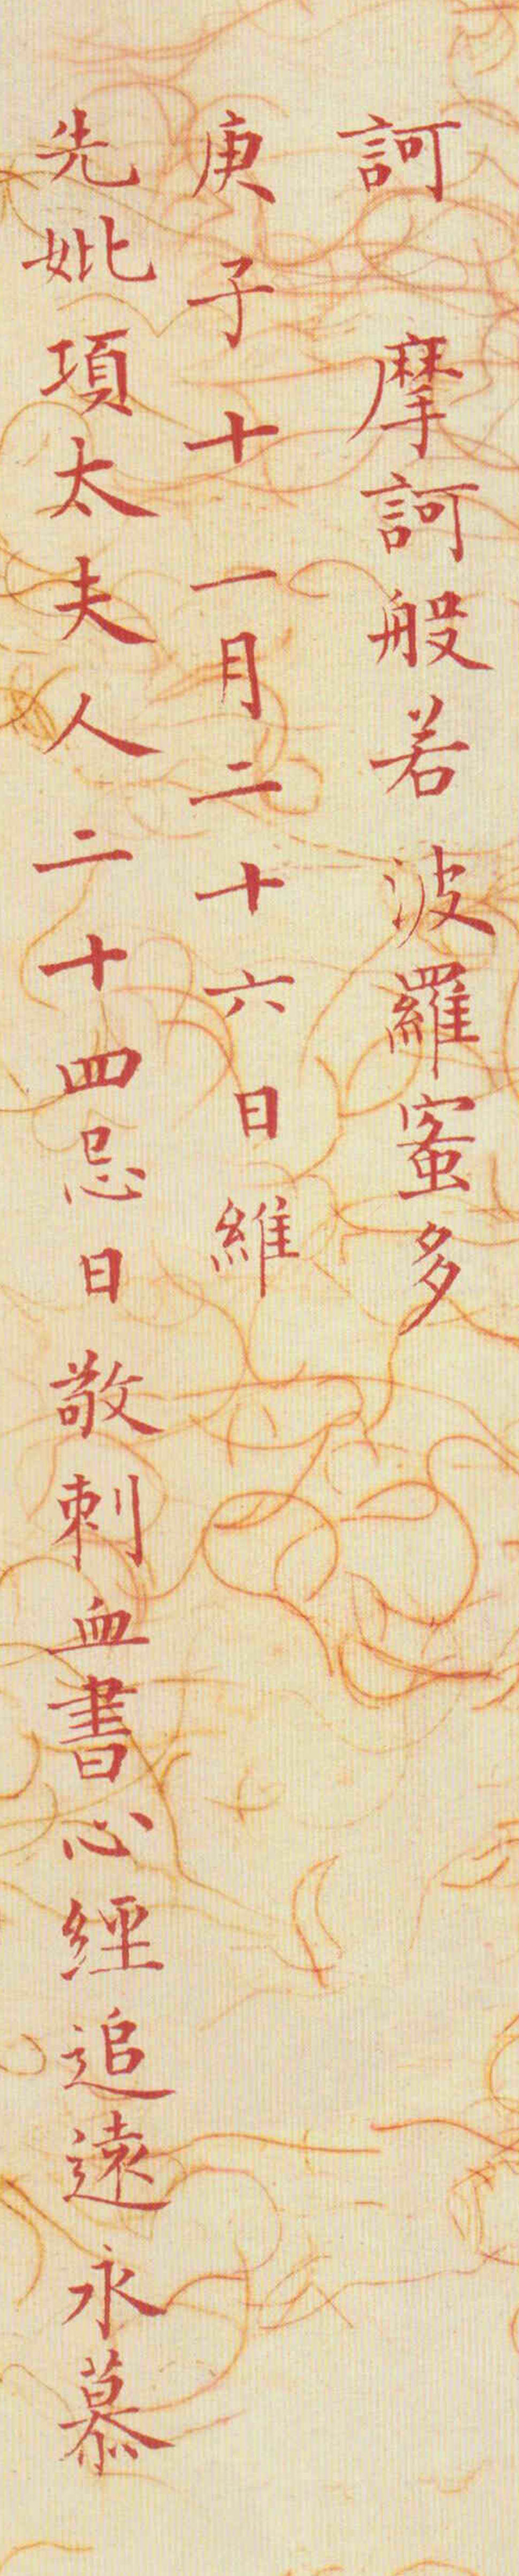 訶 摩訶般若波羅蜜多
庚子十一月二十六日維
先妣項太夫人二十四忌日敬刺血書心經追遠永慕